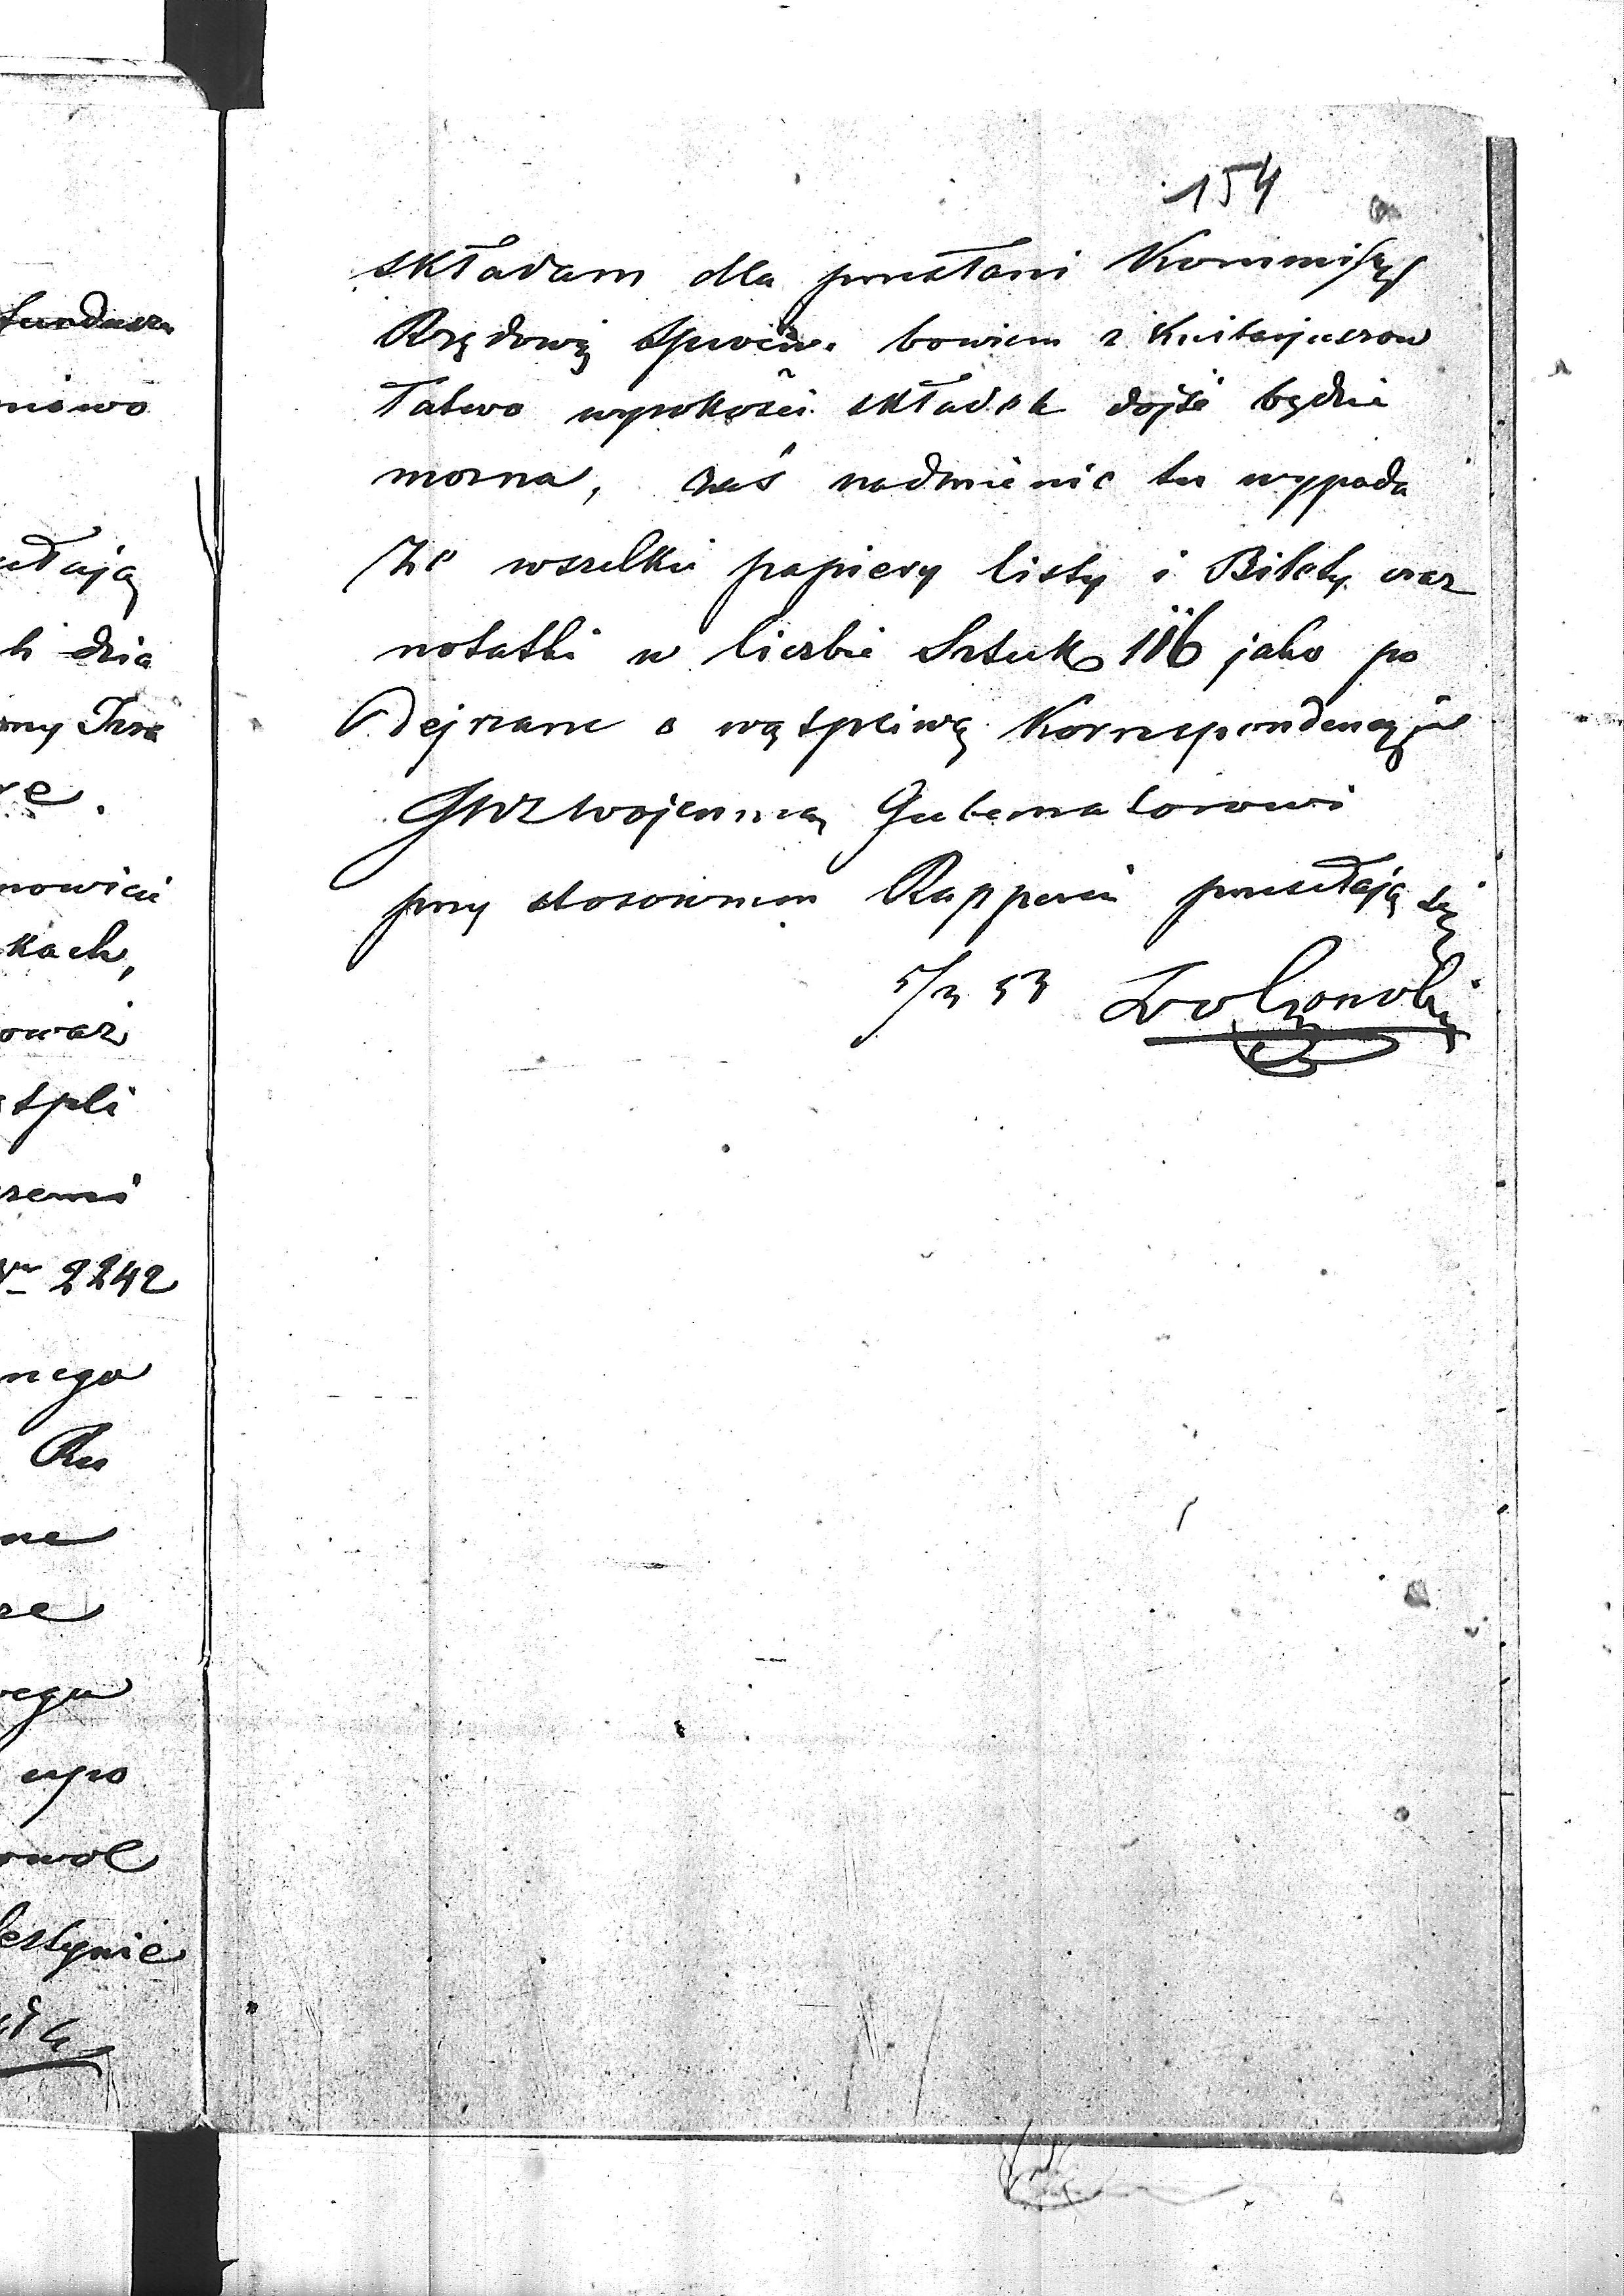 154
składam dla przesłani Kommissyi
Rządowej Spraw. bowiem z Kwitaryuszow
łatwo wysokości składek dojść będzie
można, zaś nadmienić tu wypada
że wszelkie papiery listy i Bilety oraz
notatki w liczbie Sztuk 116 jako po
dejrzane o wątpliwą Korrespondencyję
Wojenne Gubernatorowi
przy stosownem Rapporcie przesełają się
fundusza
niowo
ełają
h dzia
re.
nowicie
kach,
owaz
ątpli
szemi
Nr 2242
nego
Ru
ne
ze
wego
upo
owol
lestynie